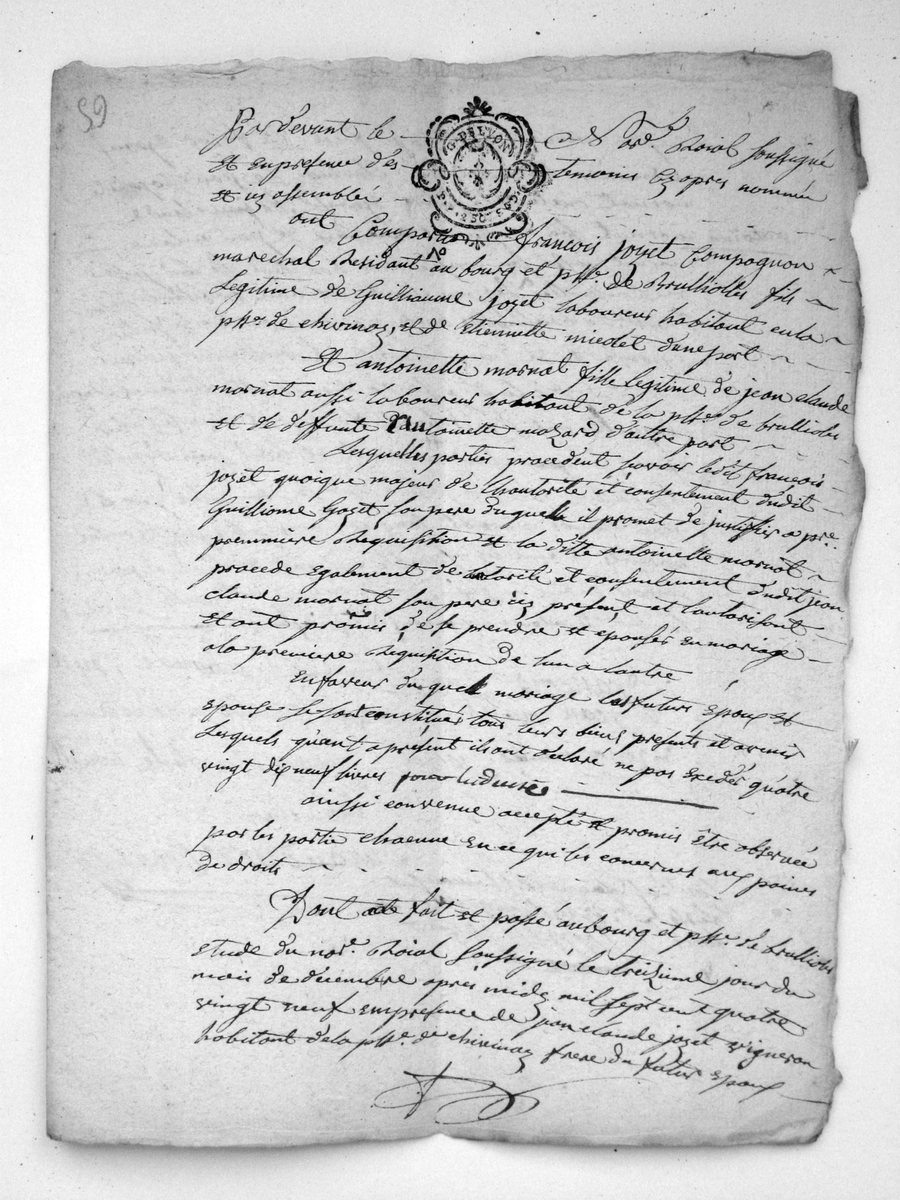 59
Par devant le Nore. Roial soussigné
G. DE LYON
Et en presence des temoins cy apres nommée
et icy assemblé
ont Comparu françois jozet Compagnon
marechal Residant au bourg et psse. de Brulliolles fils
Legitime de Guilliaume jozet laboureur habitant en la
psse. de chivinay, et de Etiennette miedet d'une part
Et antoinette mornat fille legitime de jean claude
mornat aussi laboureur habitant de la psse. de brulliolles
et de deffunte antoinette mozard d'autre part
Lesquelles parties procedent savoir ledit françois
jozet quoique majeur de Lhautorité et consentement dudit
Guilliome Jozet son pere duquelle il promet de justiffier a pre.
premmiere Requisition et la ditte antoinette mornat
procede egalement de lotorité et consentement dudit jean
claude mornat son pere icy présent et l'autorisant
et ont promis de se prendre et epouser en mariage
a la premiere Requisition de lun a lautre
En faveur duquelle mariage les futurs Epoux et
epouse se sont constitués tous leurs biens presents et avenir
Lesquels quant a présent ils ont déclaré ne pas exceder quatre
vingt dix neuf livres
ainsi convenue accepté et promis être observée
par les partie chacune en ce qui les concernes aux peines
de droits
Dont acte fait et passé au bourg et psse. de brulliolles
etude du nore. Roial soussigné le treizieme jour du
mois de décembre après midy mil sept cent quatre
vingt neuf en presence de jean claude jozet vigneron
habitant de la psse. de chivinay frere du futur epoux